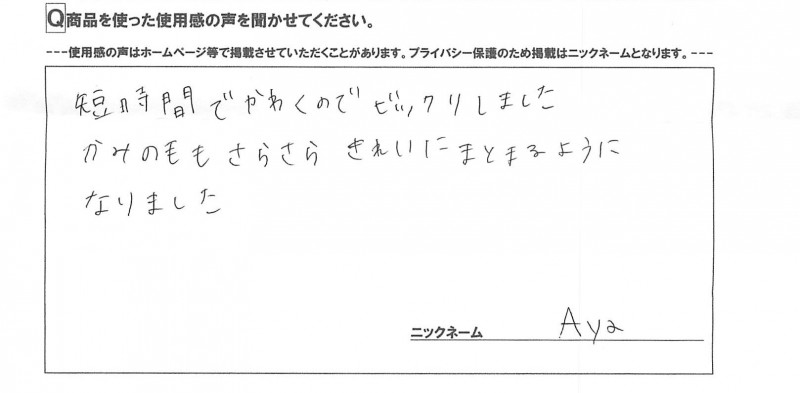 Q商品を使った使用感の声を聞かせてください。
---使用感の声はホームページ等で掲載させていただくことがあります。プライバシー保護のため掲載はニックネームとなります。---
短時間でかわくのでビックリしました
かみの毛もさらさら きれいにまとまるように
なりました
ニックネーム Aya